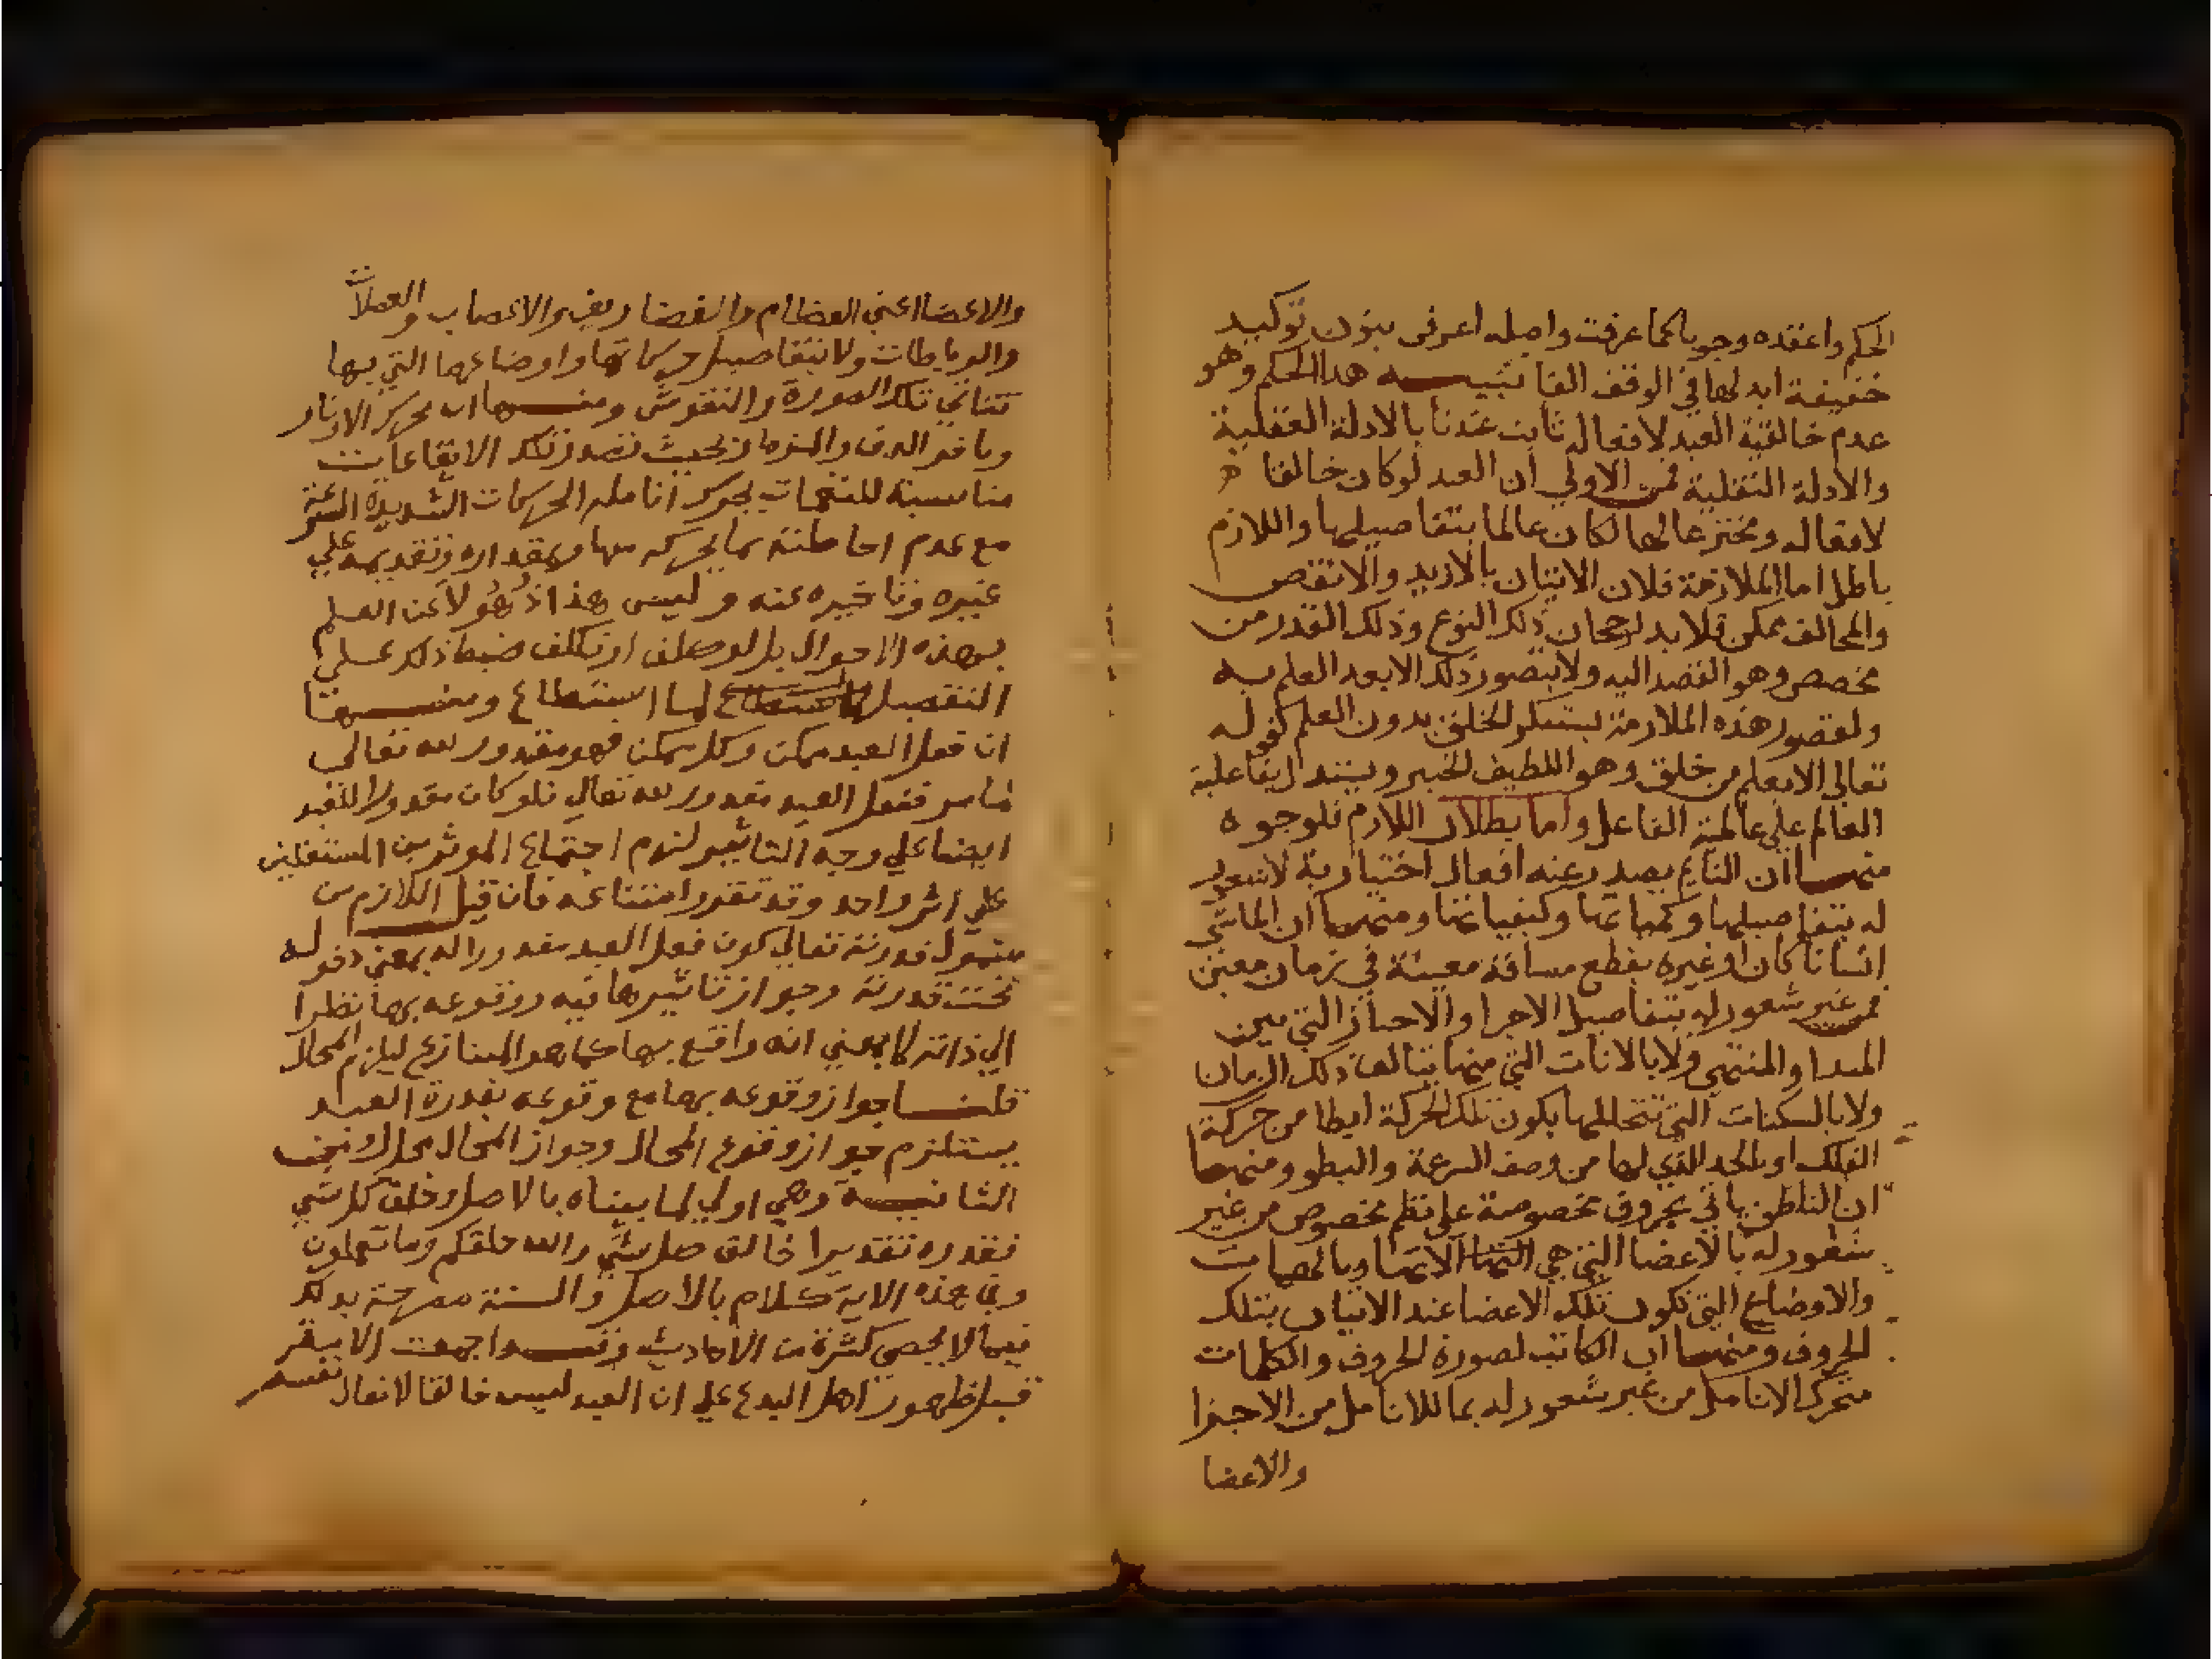 الحكم واعتقده وجوبا كما عرفت واصله اعرفن بنون توكيد
خفيفة ابدلها في الوقف الفا تنبيه هذا الحكم وهو
عدم خالقية العبد لافعاله ثابت عندنا بالادلة العقلية
والادلة النقلية فمن الاولي ان العبد لو كان خالقا
لافعاله ومخترعا لها لكان عالما بتفاصيلها واللازم
باطل اما الملازمة فلان الاتيان بالازيد والانقص
والمخالف ممكن فلا بد لرجحان ذلك النوع وذلك القدر من
مخصص وهو القصد اليه ولا يتصور ذلك الا بعد العلم به
ولقصور هذه الملازمة يستنكر الخلق بدون العلم كقوله
تعالي الا يعلم من خلق وهو اللطيف الخبير ويستدل بفاعلية
العالم علي عالمية الفاعل واما بطلان اللازم فلوجوه
منها ان النائم يصدر عنه افعال اختيارية لا شعور
له بتفاصيلها وكمياتها وكيفياتها ومنها ان الماشي
انسانا كان او غيره يقطع مسافة معينة في زمان معين
من غير شعور له بتفاصيل الاجزا والاحياز التي بين
المبدا والمنتهي ولا بالانات التي منها يتالف ذلك الزمان
ولا بالسكنات التي تتخللها بكون تلك الحركة ابطا من حركة
الفلك او بالحد الذي لها من وصف السرعة والبطو ومنها
ان الناطق ياتي بحروف مخصوصة علي نظم مخصوص من غير
شعور له بالاعضا التي هي الاتها وبالهيات
والاوضاع التي تكون تلك الاعضا عند الاتيان بتلك
الحروف ومنها ان الكاتب لصورة الحروف والكلمات
يتحرك الانامل من غير شعور له بما للانامل من الاجزا
والاعضا
والاعضا اعني العظام والغضاريف والاعصاب والعضلات
والرباطات ولا بتفاصيل حركاتها واوضاعها التي بها
تتاتي تلك الصورة والنقوش ومنها ان محرك الاوتار
وناقر الدف والمزمار بحيث تصدر تلك الايقاعات
مناسبة للنغمات يحرك انامله الحركات الشديدة السرعة
مع عدم احاطته بما يحركه منها وبمقداره وتقديمه علي
غيره وتاخيره عنه وليس هذا ذهولا عن العلم
بهذه الاحوال بل لو كلف او تكلف ضبط ذلك علي
التفصيل لما استطاع ومنها
ان فعل العبد ممكن وكل ممكن فهو مقدور لله تعالي
لما مر ففعل العبد مقدور لله تعالي فلو كان مقدورا للعبد
ايضا علي وجه التاثير لزم اجتماع الموثرين المستقلين
علي اثر واحد وقد تقرر امتناعه فان قيل اللازم من
شمول قدرته تعالي كون فعل العبد مقدورا له بمعني دخوله
تحت قدرته وجواز تاثيرها فيه ووقوعه بها نظرا
الي ذاته لا بمعني انه واقع بها كما هو المتنازع ليلزم المحال
قلنا جواز وقوعه بها مع وقوعه بقدرة العبد
يستلزم جواز وقوع المحال وجواز المحال محال ومن
الثانية وهي اولي لما بيناه بالاصل وخلق كل شي
فقدره تقديرا خالق كل شي والله خلقكم وما تعملون
وفي هذه الاية كلام بالاصل والسنة مصرحة بذلك
فيما لا يحصي كثرة من الاحاديث وقد اجمعت الامة
قبل ظهور اهل البدع علي ان العبد ليس خالقا لافعال نفسه